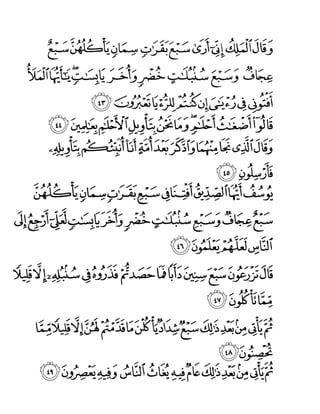 وَقَالَ ٱلْمَلِكُ إِنِّىٓ أَرَىٰ سَبْعَ بَقَرَٰتٍ سِمَانٍ يَأْكُلُهُنَّ سَبْعٌ
عِجَافٌ وَسَبْعَ سُنۢبُلَٰتٍ خُضْرٍ وَأُخَرَ يَابِسَٰتٍ ۖ يَٰٓأَيُّهَا ٱلْمَلَأُ
أَفْتُونِى فِى رُءْيَٰىَ إِن كُنتُمْ لِلرُّءْيَا تَعْبُرُونَ ٤٣
قَالُوٓا۟ أَضْغَٰثُ أَحْلَٰمٍ ۖ وَمَا نَحْنُ بِتَأْوِيلِ ٱلْأَحْلَٰمِ بِعَٰلِمِينَ ٤٤
وَقَالَ ٱلَّذِى نَجَا مِنْهُمَا وَٱدَّكَرَ بَعْدَ أُمَّةٍ أَنَا۠ أُنَبِّئُكُم بِتَأْوِيلِهِۦ
فَأَرْسِلُونِ ٤٥
يُوسُفُ أَيُّهَا ٱلصِّدِّيقُ أَفْتِنَا فِى سَبْعِ بَقَرَٰتٍ سِمَانٍ يَأْكُلُهُنَّ
سَبْعٌ عِجَافٌ وَسَبْعِ سُنۢبُلَٰتٍ خُضْرٍ وَأُخَرَ يَابِسَٰتٍ لَّعَلِّىٓ أَرْجِعُ إِلَى
ٱلنَّاسِ لَعَلَّهُمْ يَعْلَمُونَ ٤٦
قَالَ تَزْرَعُونَ سَبْعَ سِنِينَ دَأَبًا فَمَا حَصَدتُّمْ فَذَرُوهُ فِى سُنۢبُلِهِۦٓ إِلَّا قَلِيلًا
مِّمَّا تَأْكُلُونَ ٤٧
ثُمَّ يَأْتِى مِنۢ بَعْدِ ذَٰلِكَ سَبْعٌ شِدَادٌ يَأْكُلْنَ مَا قَدَّمْتُمْ لَهُنَّ إِلَّا قَلِيلًا مِّمَّا
تُحْصِنُونَ ٤٨
ثُمَّ يَأْتِى مِنۢ بَعْدِ ذَٰلِكَ عَامٌ فِيهِ يُغَاثُ ٱلنَّاسُ وَفِيهِ يَعْصِرُونَ ٤٩